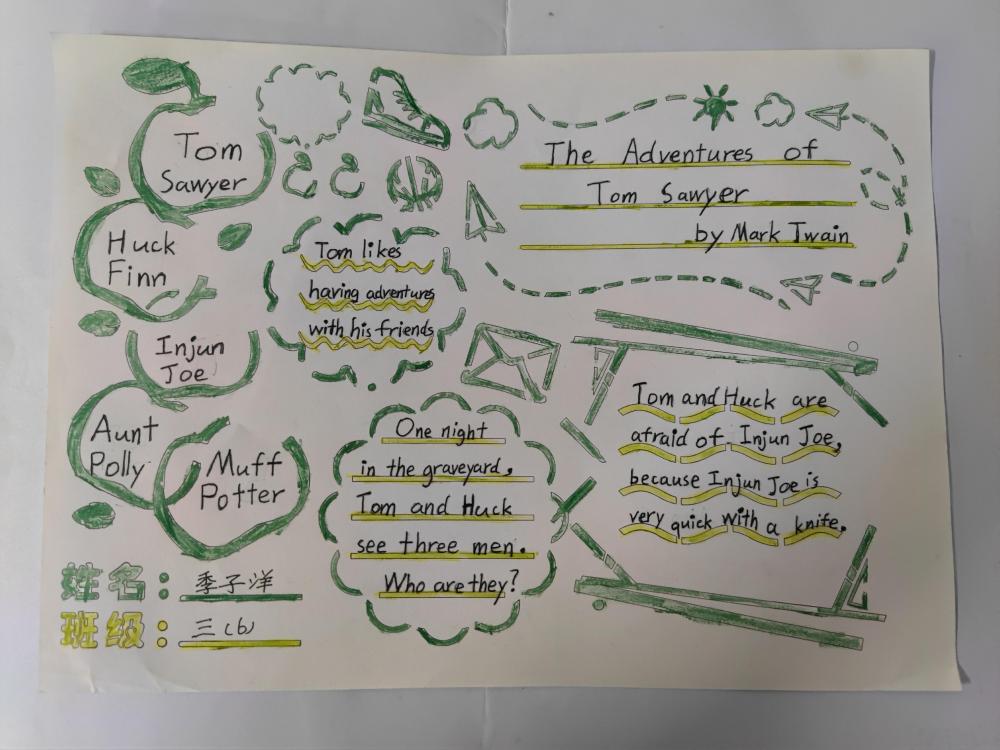 The Adventures of
Tom Sawyer
by Mark Twain
Tom
Sawyer
Huck
Finn
Injun
Joe
Aunt
Polly
Muff
Potter
Tom likes
having adventures
with his friends
One night
in the graveyard,
Tom and Huck
see three men.
Who are they?
Tom and Huck are
afraid of Injun Joe,
because Injun Joe is
very quick with a knife.
姓名：季子洋
班级：三(6)